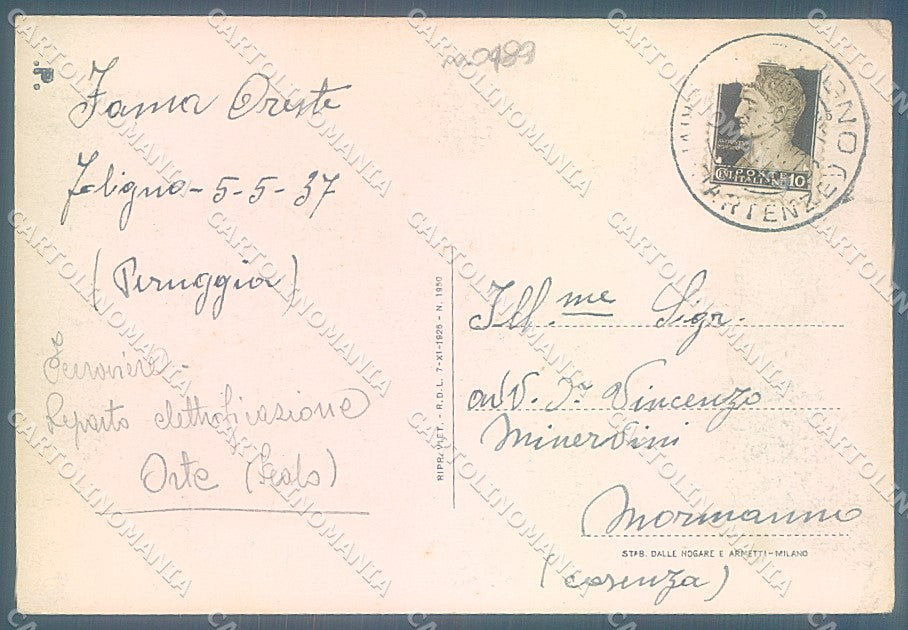 Fama Oreste
Foligno - 5-5-37
(Peruggia)
Ferroviere -
Reparto elettrificazione
Orte (Scalo)
RIPR. VIET. - R.D.L. 7-XI-1925 - N. 1950
POSTE
ITALIANE
10
PARTENZE
Ill.me Sigr.
avv. Dr Vincenzo
Minervini
Mormanno
STAB. DALLE NOGARE E ARMETTI-MILANO
(Cosenza)
CARTOLINOMANIA